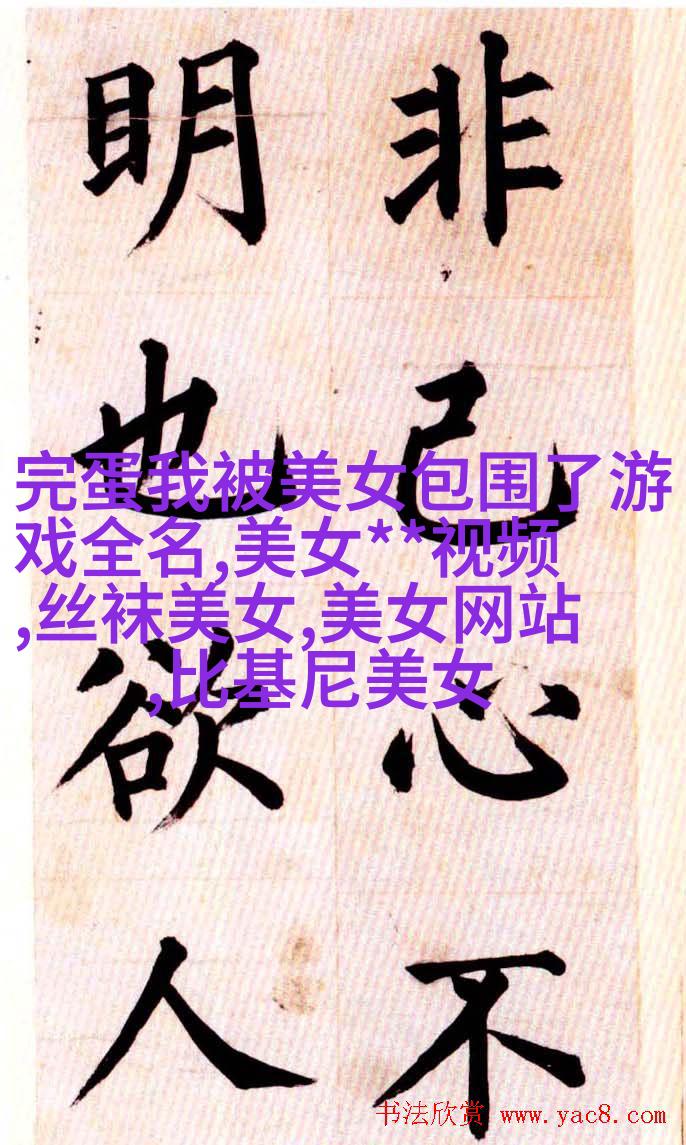 非己心不
明也欲人
完蛋我被美女包围了游
戏全名,美女**视频
,丝袜美女,美女网站
,比基尼美女
书法欣赏 www.yac8.com